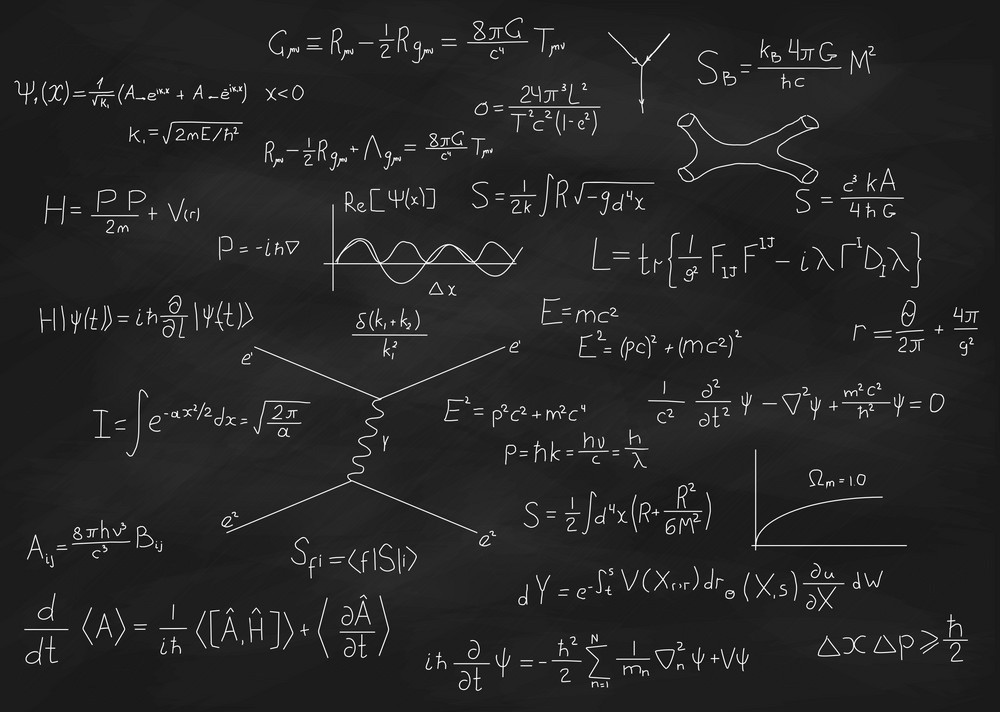 G_μν ≡ R_μν − 1/2 R g_μν = 8πG/c⁴ T_μν
S_B = k_B 4πG/ħc M²
Ψ₁(x) = 1/√k₁ (A_→e^{ik₁x} + A_←e^{ik₁x}) x<0
σ = 24π³L²/T²c²(1-e²)
k₁ = √2mE/ħ²
R_μν − 1/2 R g_μν + Λ g_μν = 8πG/c⁴ T_μν
H = PP/2m + V(r)
Re[Ψ(x)]
S = 1/2k ∫R√−g d⁴x
S = c³kA/4ħG
P = -iħ∇
L = tr{1/g² F_IJ F^IJ − iλΓ^I D_I λ}
Δx
H|ψ(t)⟩ = iħ ∂/∂t |ψ(t)⟩
δ(k₁+k₂)/k₁²
E = mc²
E² = (pc)² + (mc²)²
r = θ/2π + 4π/g²
e'
e'
I = ∫e^{-αx²/2}dx = √2π/α
γ
E² = p²c² + m²c⁴
1/c² ∂²/∂t² ψ − ∇²ψ + m²c²/ħ² ψ = 0
P = ħk = hν/c = h/λ
Ω_m = 1.0
e²
e²
S = 1/2 ∫d⁴x(R + R²/6M²)
A_ij = 8πhν³/c³ B_ij
S_fi = ⟨f|S|i⟩
dY = e^{-∫_t^s} V(X_r,r)dr_Θ (X,s) ∂u/∂X dW
d/dt ⟨A⟩ = 1/iħ ⟨[Â,Ĥ]⟩ + ⟨∂Â/∂t⟩
iħ ∂/∂t ψ = − ħ²/2 Σ_{n=1}^{N} 1/m_n ∇_n² ψ + Vψ
ΔxΔp ⩾ ħ/2